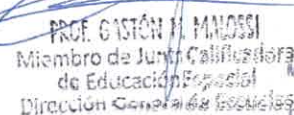 PROF. GASTÓN M. MALOSSI
Miembro de Junta Calificadora
de Educación Especial
Dirección General de Escuelas